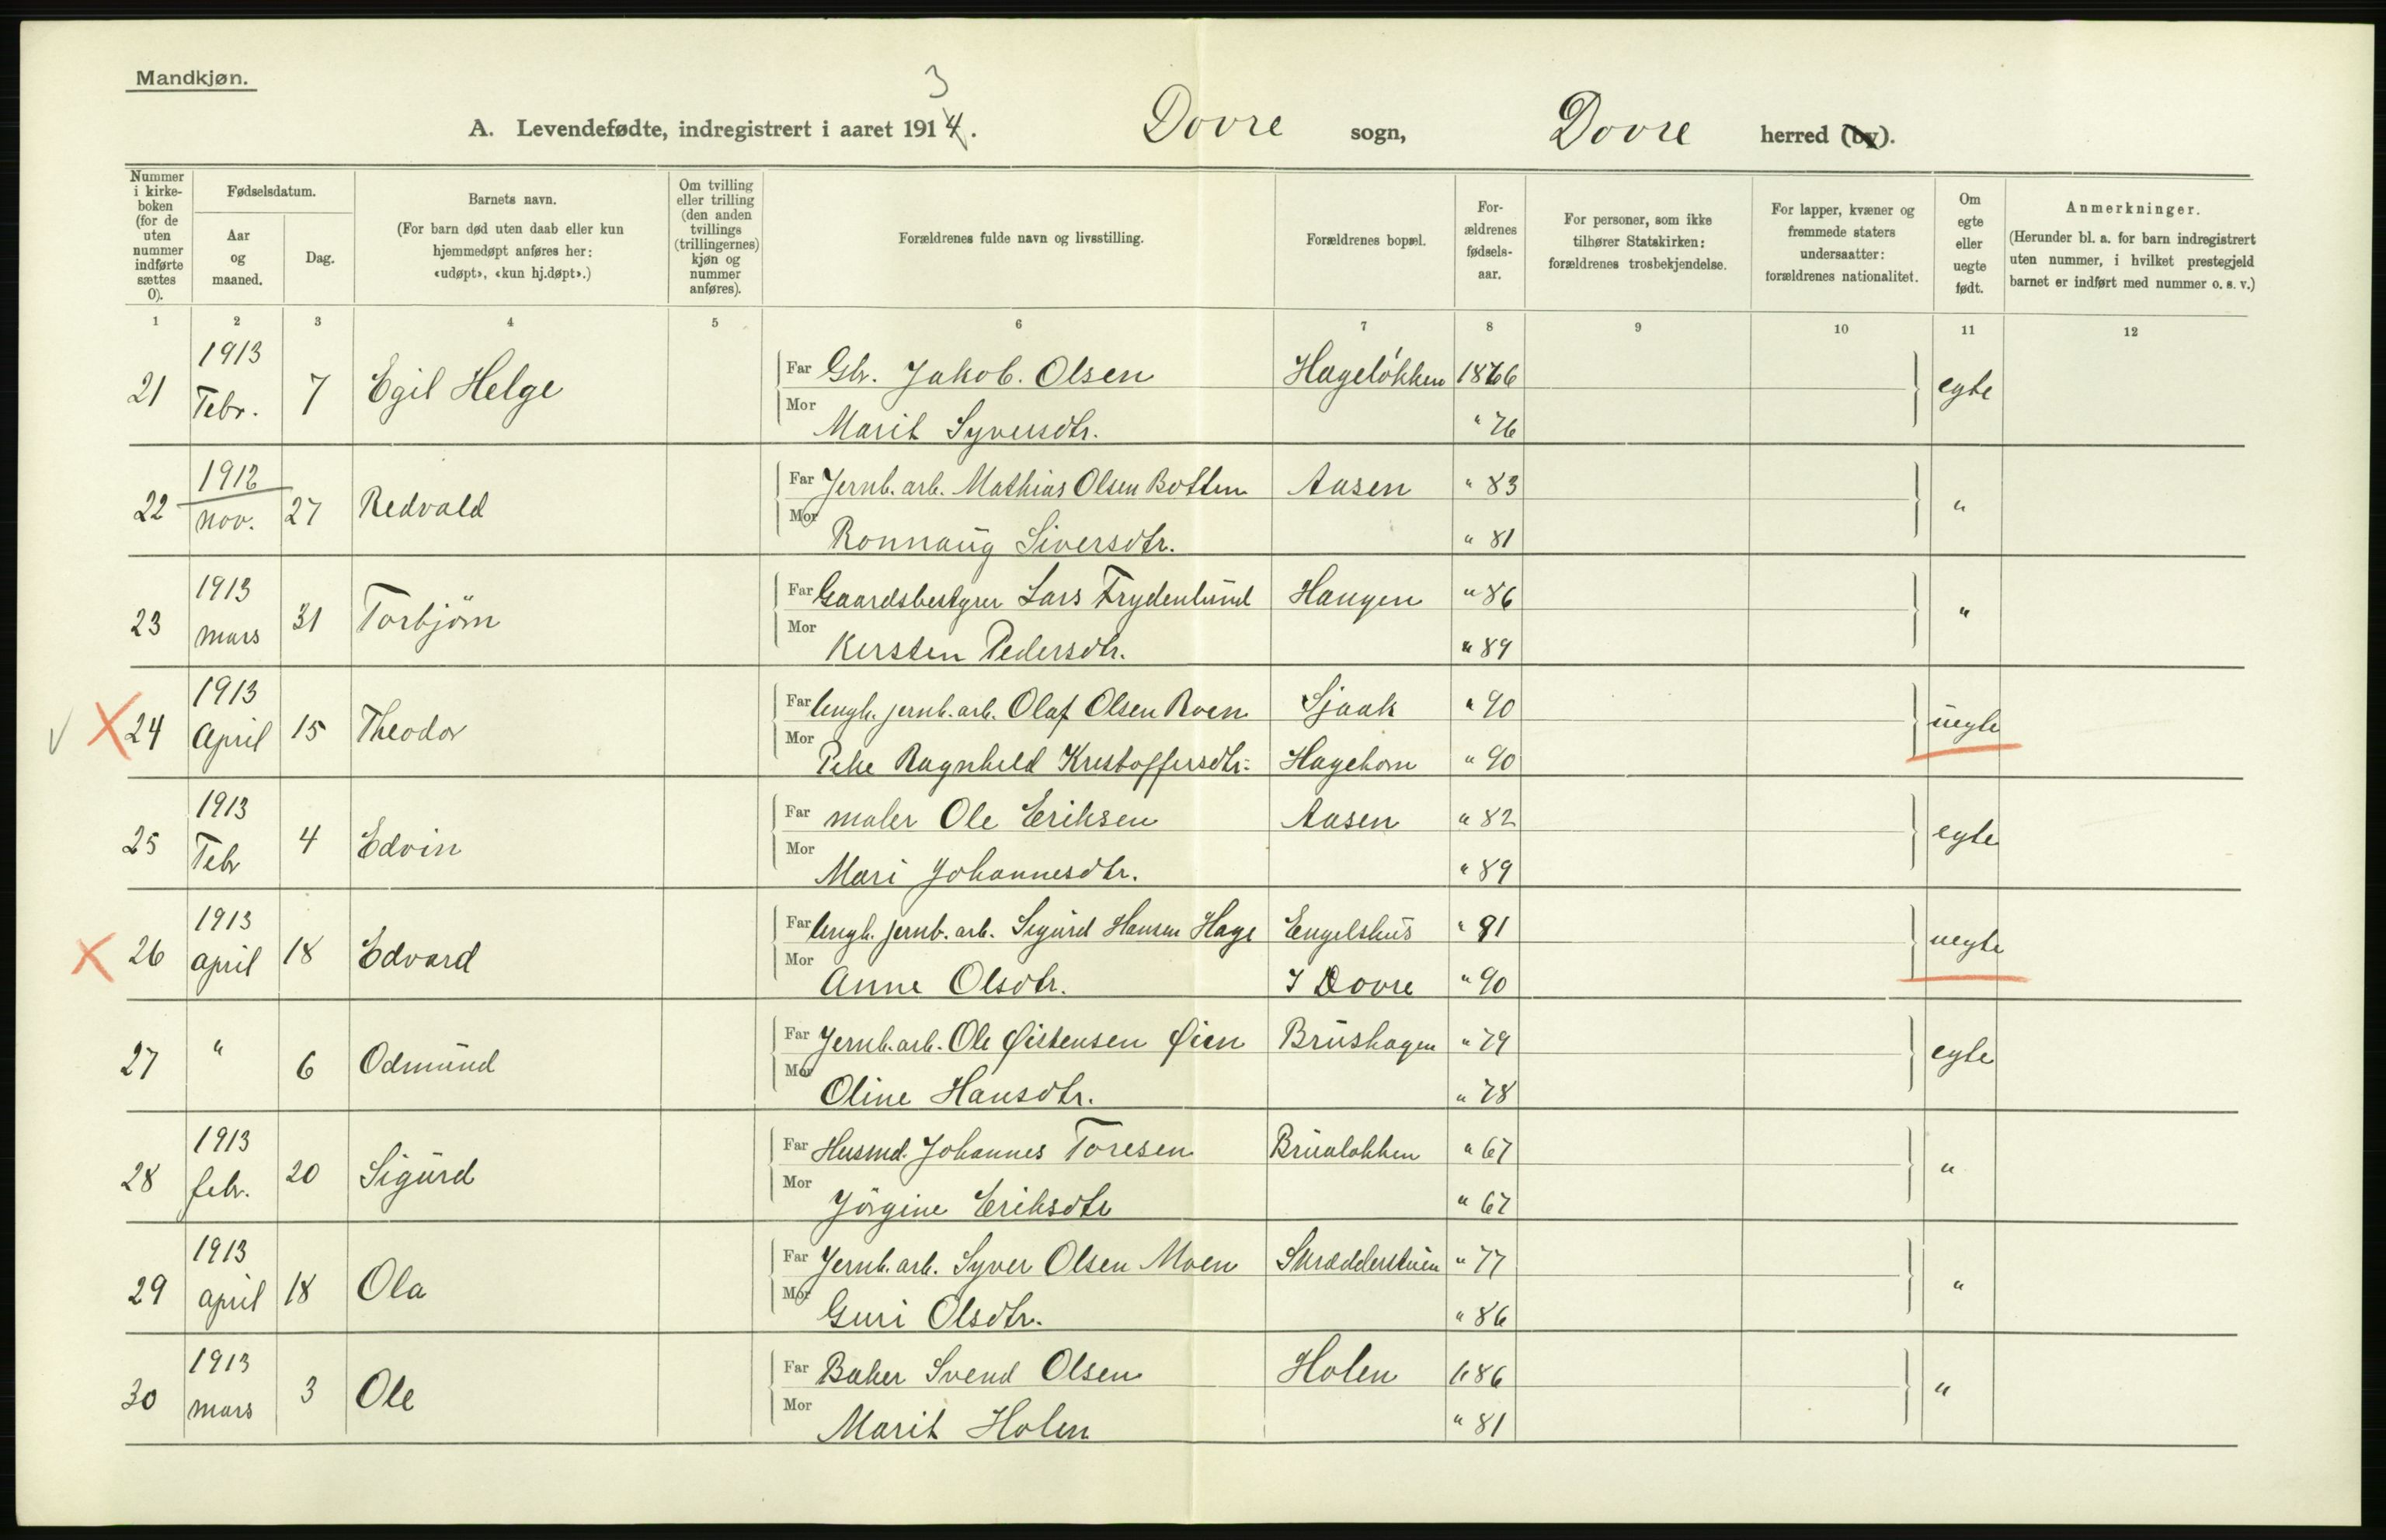 Mandkjøn.
3
A. Levendefødte, indregistrert i aaret 1914. Dovre sogn, Dovre herred (by).
Nummer i kirke-boken (for de uten nummer indførte sættes 0).
Fødselsdatum.
Aar og maaned.
Dag.
Barnets navn.
(For barn død uten daab eller kun hjemmedøpt anføres her: «udøpt», «kun hj.døpt».)
Om tvilling eller trilling (den anden tvillings (trillingernes) kjøn og nummer anføres).
Forældrenes fulde navn og livsstilling.
Forældrenes bopæl.
For-ældrenes fødsels-aar.
For personer, som ikke tilhører Statskirken: forældrenes trosbekjendelse.
For lapper, kvæner og fremmede staters undersaatter: forældrenes nationalitet.
Om egte eller uegte født.
Anmerkninger.
(Herunder bl. a. for barn indregistrert uten nummer, i hvilket prestegjeld barnet er indført med nummer o. s. v.)
1 2 3 4 5 6 7 8 9 10 11 12
21 1913 Febr. 7 Egil Helge Far Gbr. Jakob. Olsen Hageløkken 1866 egte
Mor Marit Syversdtr. " 76
22 1912 nov. 27 Redvald Far Jernb. arb. Mathias Olsen Botten Aasen " 83 "
Mor Ronnaug Siversdtr. " 81
23 1913 mars 31 Torbjörn Far Gaardsbestyrer Lars Frydenlund Haugen " 86 "
Mor Kersten Pedersdtr. " 89
24 1913 April 15 Theodor Far Ungk. jernb. arb. Olaf Olsen Roen Sjaak " 90 uegte
Mor Pike Ragnhild Kristoffersdtr. Hagehorn " 90
25 1913 Febr 4 Edvin Far maler Ole Eriksen Aasen " 82 egte
Mor Mari Johannesdtr. " 89
26 1913 april 18 Edvard Far Ungk. jernb. arb. Sigurd Hansen Hage Engelshus " 91 uegte
Mor Anne Olsdtr. I Dovre " 90
27 " 6 Odmund Far Jernb. arb. Ole Østensen Øien Brushagen " 79 egte
Mor Oline Hansdtr. " 78
28 1913 febr. 20 Sigurd Far Husmd. Johannes Toresen Brualøkken " 67 "
Mor Jörgine Eriksdtr " 67
29 1913 april 18 Ola Far Jernb. arb. Syver Olsen Moen Skrædderstuen " 77 "
Mor Guri Olsdtr. " 86
30 1913 mars 3 Ole Far Baker Svend Olsen Holen " 86 "
Mor Marit Holen " 81